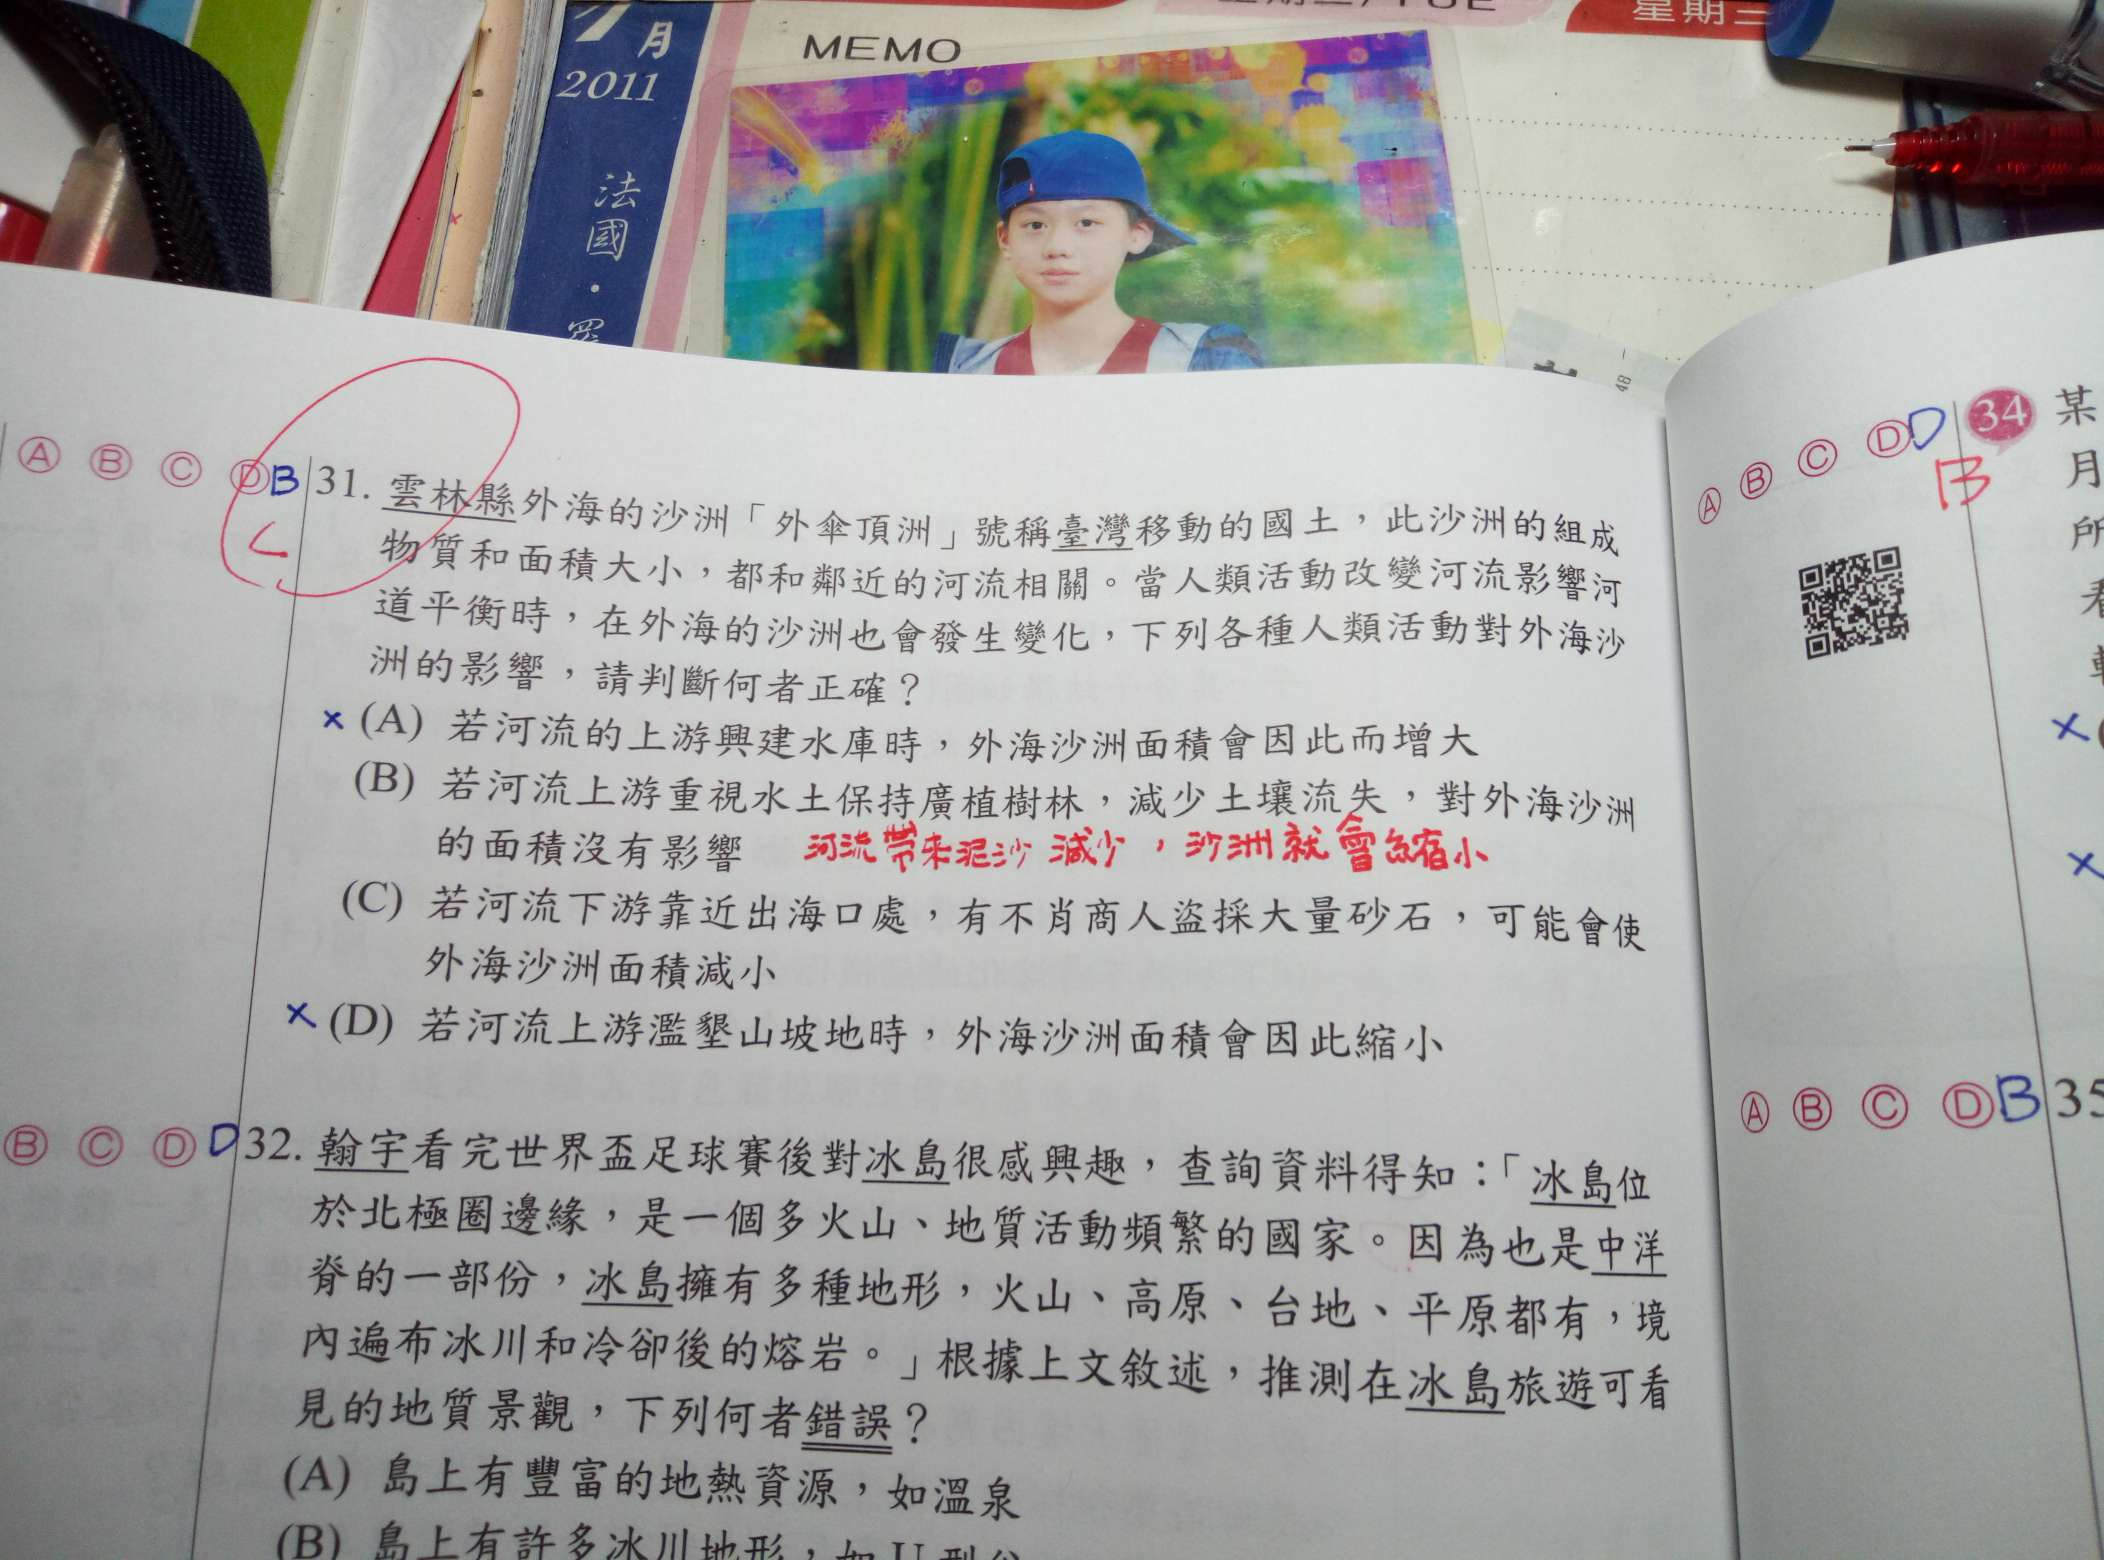 月
MEMO
2011
法國・
星期三
Ⓐ Ⓑ Ⓒ Ⓓ B
C
31. 雲林縣外海的沙洲「外傘頂洲」號稱臺灣移動的國土，此沙洲的組成
物質和面積大小，都和鄰近的河流相關。當人類活動改變河流影響河
道平衡時，在外海的沙洲也會發生變化，下列各種人類活動對外海沙
洲的影響，請判斷何者正確？
× (A) 若河流的上游興建水庫時，外海沙洲面積會因此而增大
(B) 若河流上游重視水土保持廣植樹林，減少土壤流失，對外海沙洲
的面積沒有影響 河流帶來泥沙減少，沙洲就會縮小
(C) 若河流下游靠近出海口處，有不肖商人盜採大量砂石，可能會使
外海沙洲面積減小
× (D) 若河流上游濫墾山坡地時，外海沙洲面積會因此縮小
Ⓑ Ⓒ Ⓓ D
32. 翰宇看完世界盃足球賽後對冰島很感興趣，查詢資料得知：「冰島位
於北極圈邊緣，是一個多火山、地質活動頻繁的國家。因為也是中洋
脊的一部份，冰島擁有多種地形，火山、高原、台地、平原都有，境
內遍布冰川和冷卻後的熔岩。」根據上文敘述，推測在冰島旅遊可看
見的地質景觀，下列何者錯誤？
(A) 島上有豐富的地熱資源，如溫泉
(B) 島上有許多冰川地形，如U型谷
Ⓐ Ⓑ Ⓒ Ⓓ D 34 某
B
月
所
×
×
Ⓐ Ⓑ Ⓒ Ⓓ B 35